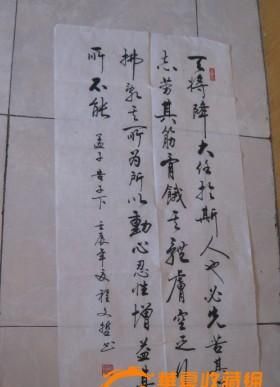 天将降大任於斯人也必先苦其
志劳其筋骨饿其體膚空乏
拂乱其所为所以動心忍性增益其
所不能 孟子告子下 壬辰年夏 程文
華夏收藏網